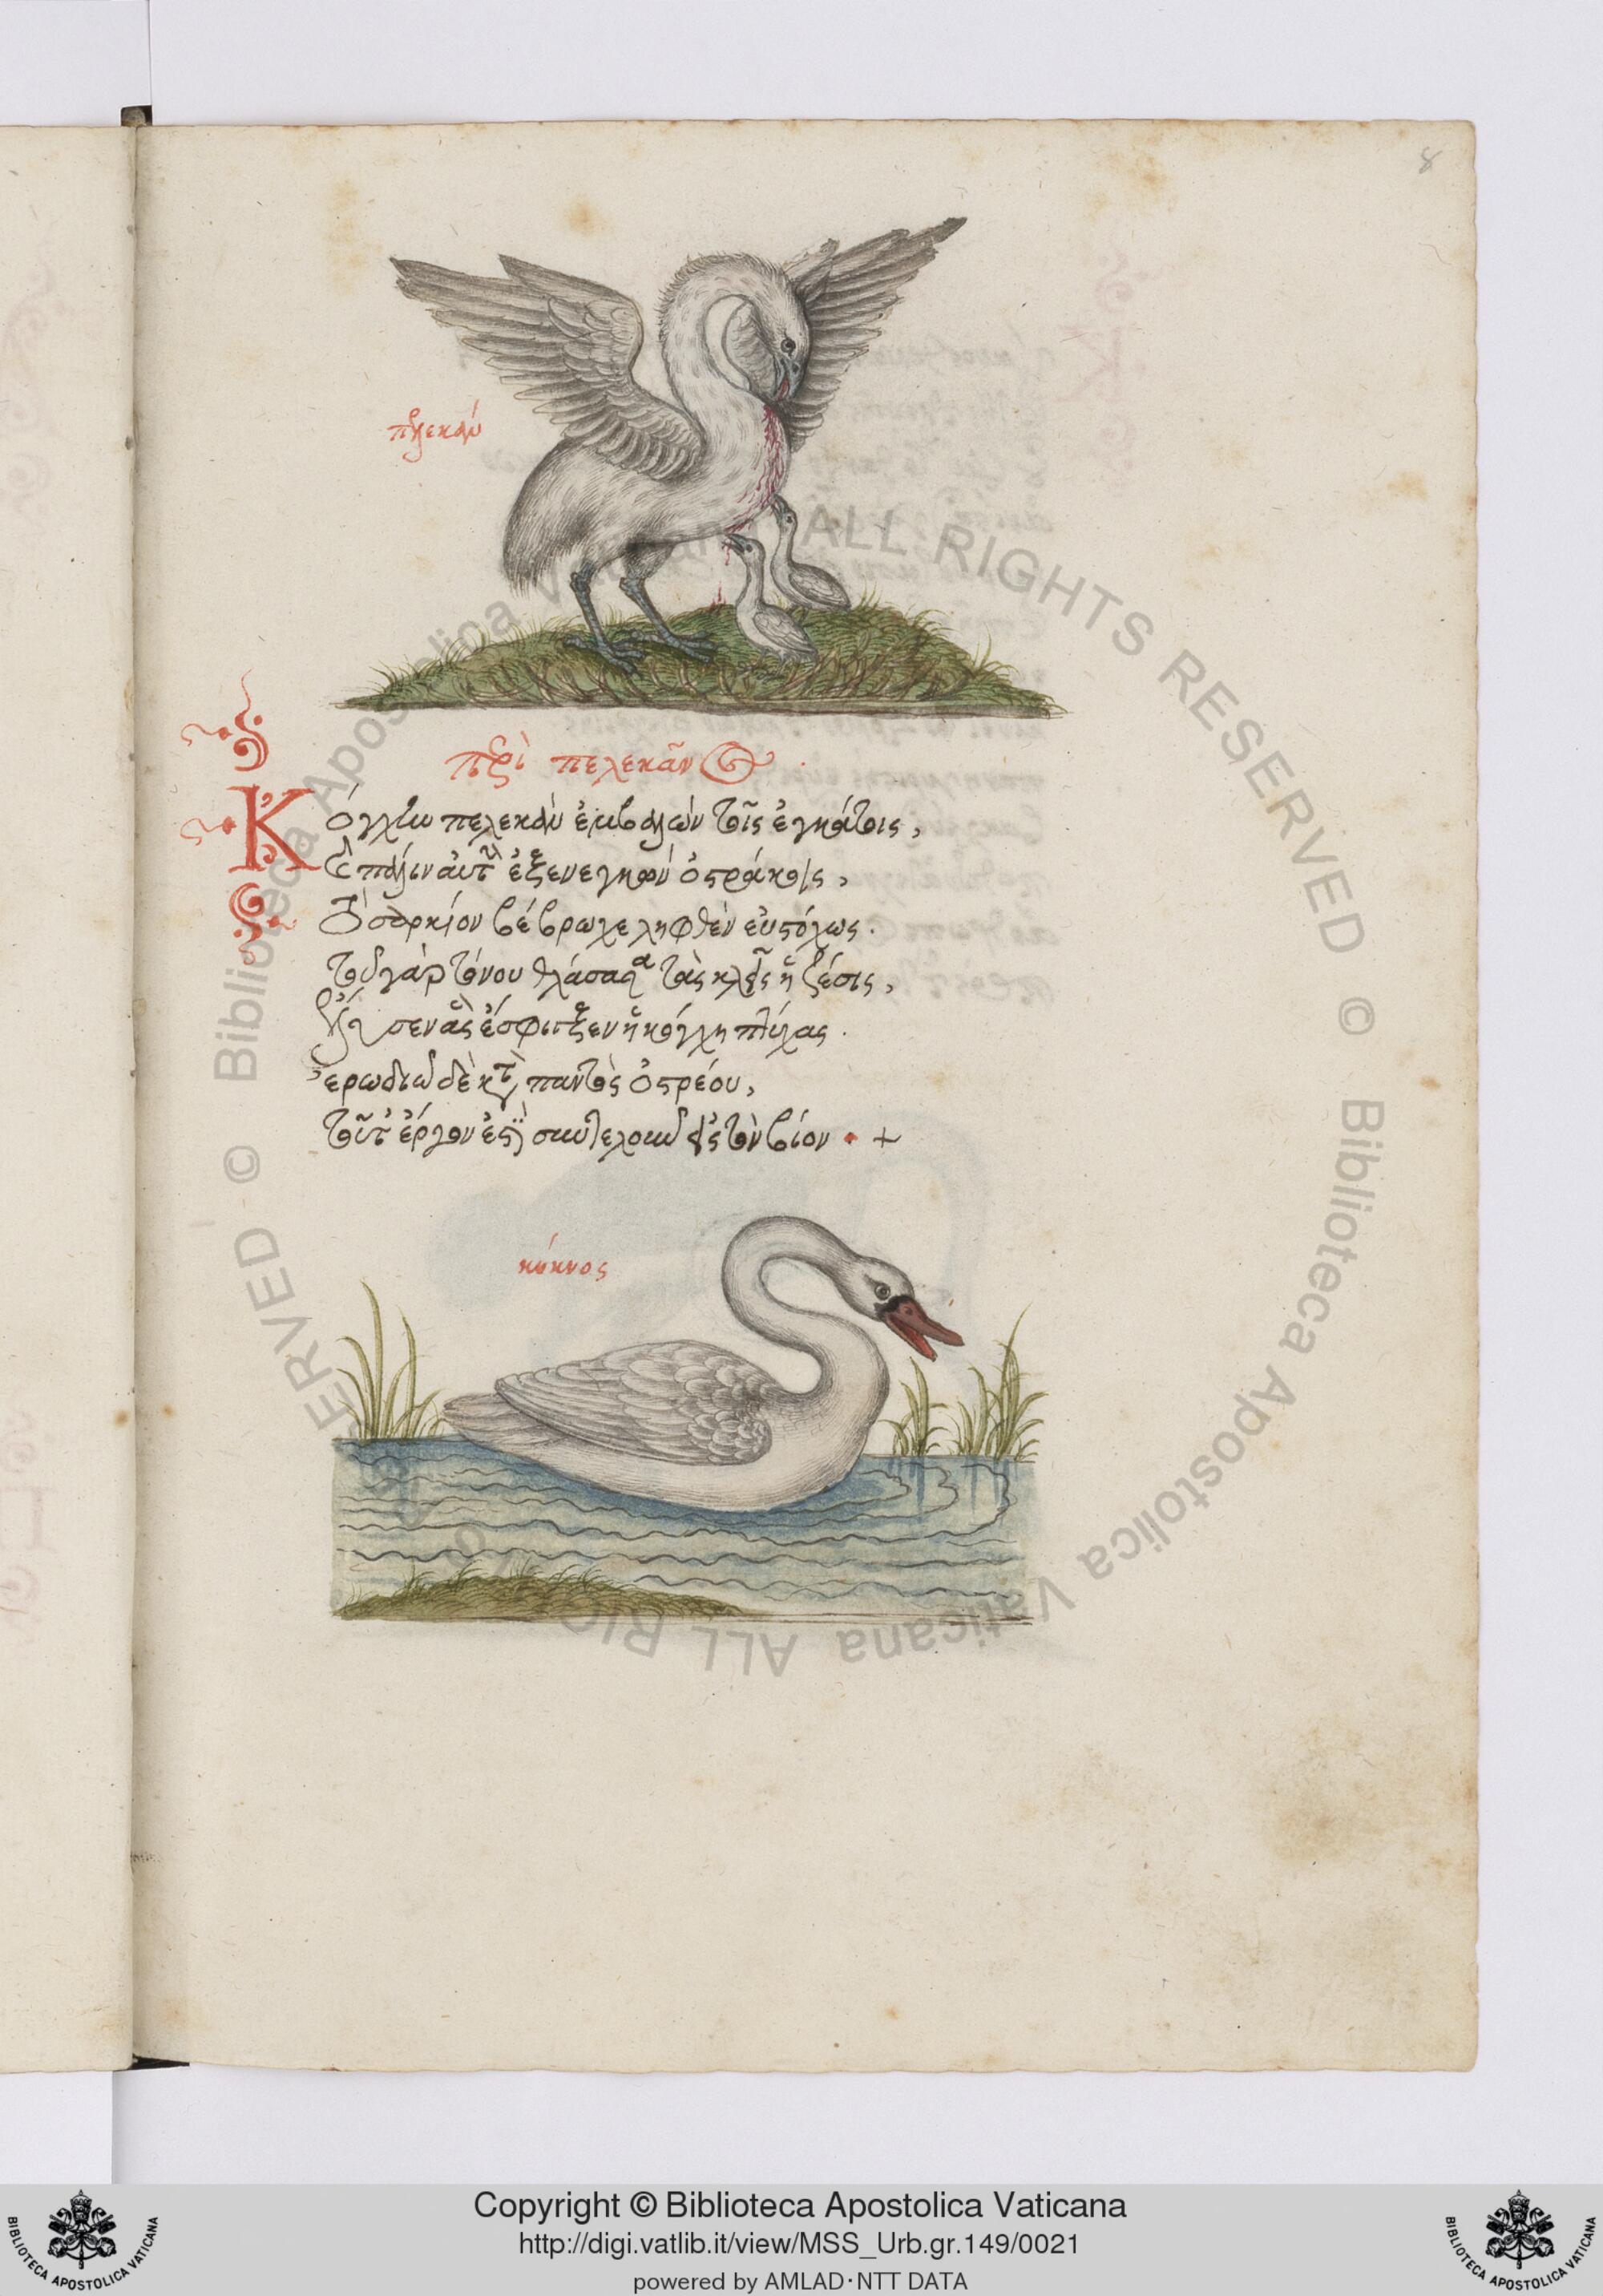 8
πελεκάν
περὶ πελεκᾶνος .
Κόγχην πελεκὰν ἐμβαλὼν τοῖς ἐγκάτοις,
πάλιν αὐτὴν ἐξενεγκὼν ὀστράκοις,
σαρκίον βέβρωκε ληφθὲν εὐστόχως.
τοῦ γὰρ τόνου θλάσαντος τὰς κλεῖς ἡ ζέσις,
ἔσφιγξεν ἡ κόγχη πτύχας.
ἐρωδιῷ δὲ κατὰ παντὸς ὀστρέου,
τοῦτ' ἔργον ἐστὶ σκυλεύειν εἰς τὸν βίον · +
κύκνος
© Biblioteca Apostolica Vaticana ALL RIGHTS RESERVED © Biblioteca Apostolica Vaticana ALL RIGHTS RESERVED
Copyright © Biblioteca Apostolica Vaticana
http://digi.vatlib.it/view/MSS_Urb.gr.149/0021
powered by AMLAD·NTT DATA
BIBLIOTECA APOSTOLICA VATICANA
BIBLIOTECA APOSTOLICA VATICANA